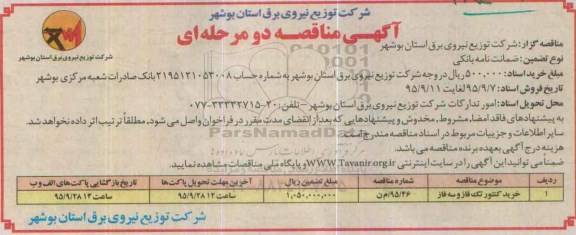 شرکت توزیع نیروی برق استان بوشهر
آگهی مناقصه دو مرحله ای
شرکت توزیع نیروی برق استان بوشهر
مناقصه گزار: شرکت توزیع نیروی برق استان بوشهر
نوع تضمین: ضمانت نامه بانکی
مبلغ خرید اسناد: ۵۰۰،۰۰۰ ریال در وجه شرکت توزیع نیروی برق استان بوشهر به شماره حساب ۲۱۹۵۱۲۱۰۵۳۰۰۸ بانک صادرات شعبه مرکزی بوشهر
تاریخ فروش اسناد: ۹۵/۹/۷ لغایت ۹۵/۹/۱۱
محل تحویل اسناد: امور تدارکات شرکت توزیع نیروی برق استان بوشهر - تلفن: ۲۰-۳۳۳۳۲۷۱۵-۰۷۷
به پیشنهادهای فاقد امضا، مشروط، مخدوش و پیشنهادهایی که بعد از انقضای مدت مقرر در فراخوان واصل می شود، مطلقاً ترتیب اثر داده نخواهد شد.
سایر اطلاعات و جزییات مربوط در اسناد مناقصه مندرج است.
هزینه درج آگهی بعهده برنده مناقصه می باشد.
ضمنا می توانید این آگهی را در سایت اینترنتی www.Tavanir.org.ir و پایگاه ملی مناقصات مشاهده نمایید.
ردیف موضوع مناقصه شماره مناقصه مبلغ تضمین ریال آخرین مهلت تحویل پاکت ها تاریخ بازگشایی پاکت های الف و ب
۱ خرید کنتور تک فاز و سه فاز ۹۵/۴۶/م ن ۱،۰۵۰،۰۰۰،۰۰۰ ساعت ۱۲ ۹۵/۹/۲۸ ساعت ۱۳ ۹۵/۹/۲۸
شرکت توزیع نیروی برق استان بوشهر